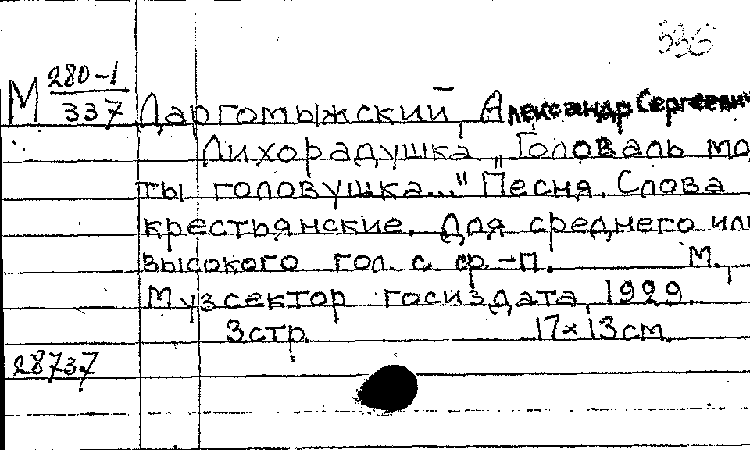 536
М 280-1
337 Даргомыжский, Александр Сергеевич
Лихорадушка. "Головаль мо
ты головушка..." Песня. Слова
крестьянские. Для среднего или
высокого гол. с ф.-п. М.,
Музсектор госиздата, 1929.
3стр. 17×13см.
28737